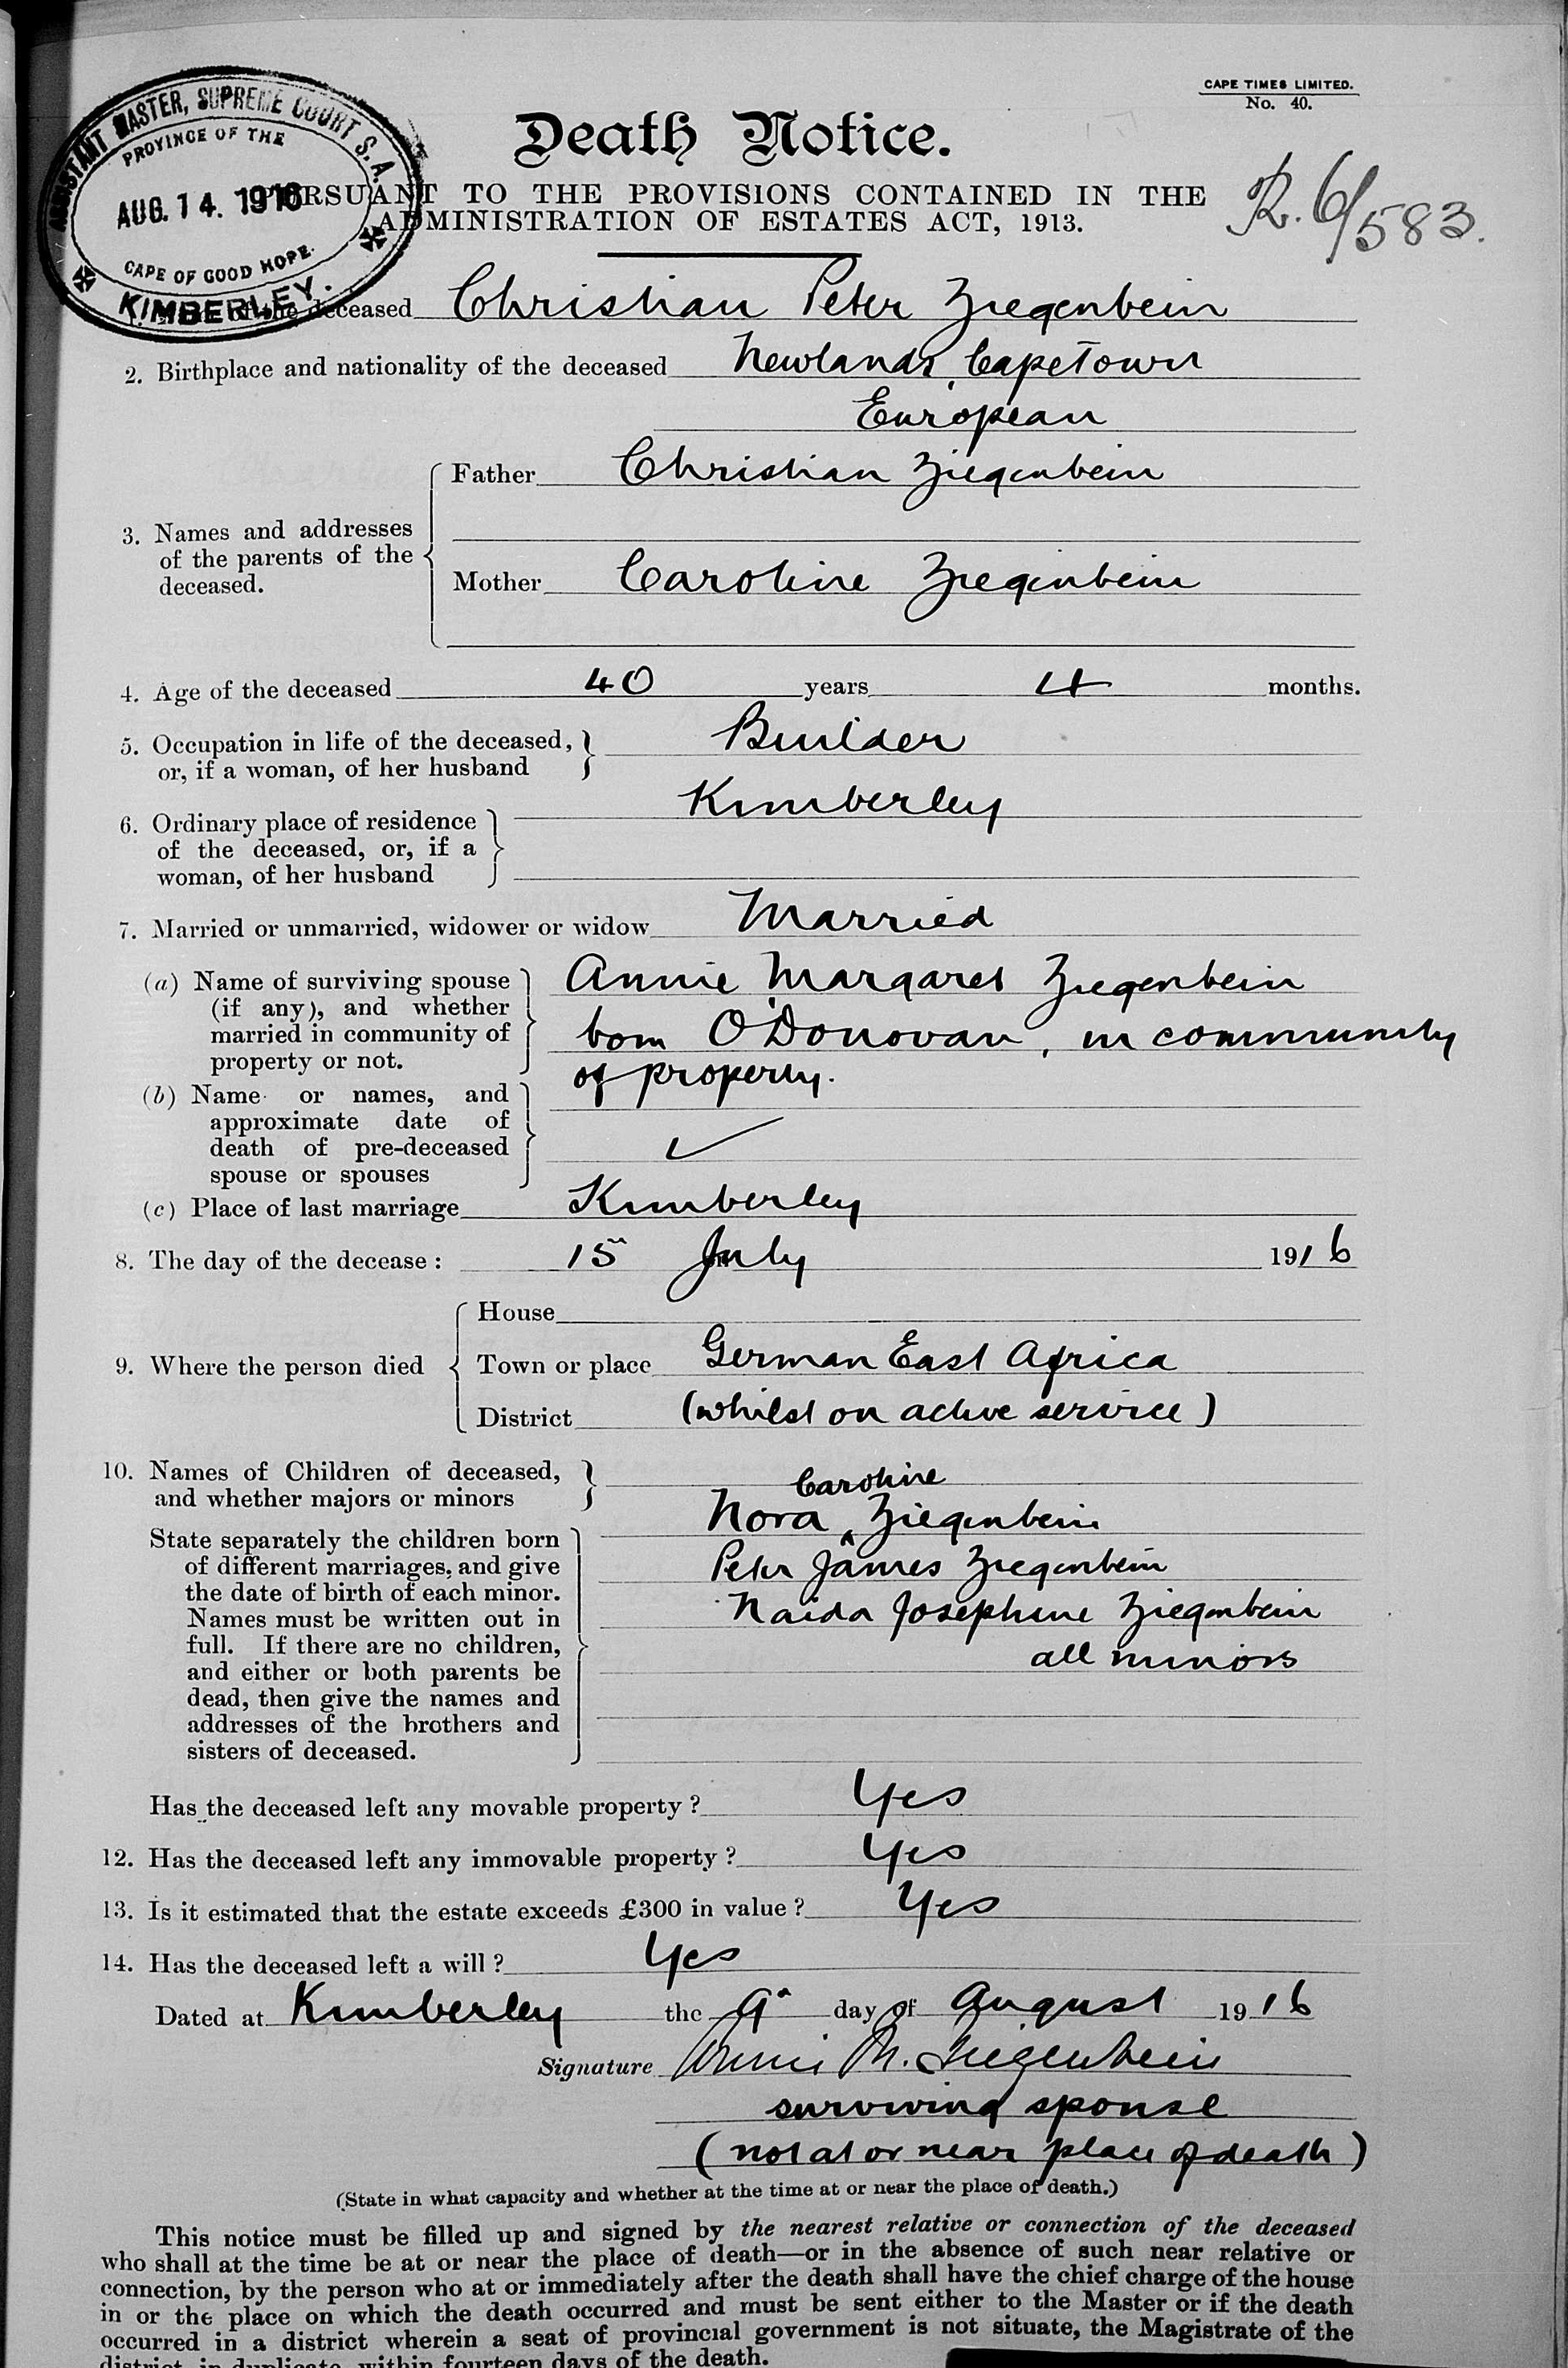 CAPE TIMES LIMITED.
No. 40.
ASSISTANT MASTER, SUPREME COURT S.A.
PROVINCE OF THE
AUG. 14. 1916
CAPE OF GOOD HOPE.
KIMBERLEY.
Death Notice.
PURSUANT TO THE PROVISIONS CONTAINED IN THE
ADMINISTRATION OF ESTATES ACT, 1913.
R. 6/583.
1. of the deceased Christian Peter Ziegenbein
2. Birthplace and nationality of the deceased Newlands, CapeTown
European
3. Names and addresses of the parents of the deceased.
Father Christian Ziegenbein
Mother Caroline Ziegenbein
4. Age of the deceased 40 years 4 months.
5. Occupation in life of the deceased, Builder
or, if a woman, of her husband
6. Ordinary place of residence Kimberley
of the deceased, or, if a
woman, of her husband
7. Married or unmarried, widower or widow Married
(a) Name of surviving spouse Annie Margaret Ziegenbein
(if any), and whether
married in community of born O'Donovan, in community
property or not. of property.
(b) Name or names, and
approximate date of
death of pre-deceased ✓
spouse or spouses
(c) Place of last marriage Kimberley
8. The day of the decease: 15" July 1916
9. Where the person died
House
Town or place German East Africa
District (whilst on active service)
10. Names of Children of deceased,
and whether majors or minors Caroline
Nora ^ Ziegenbein
State separately the children born
of different marriages, and give Peter James Ziegenbein
the date of birth of each minor.
Names must be written out in Naida Josephine Ziegenbein
full. If there are no children, all minors
and either or both parents be
dead, then give the names and
addresses of the brothers and
sisters of deceased.
Has the deceased left any movable property? Yes
12. Has the deceased left any immovable property? Yes
13. Is it estimated that the estate exceeds £300 in value? Yes
14. Has the deceased left a will? Yes
Dated at Kimberley the 9" day of August 1916
Signature Annie M. Ziegenbein
surviving spouse
(not at or near place of death)
(State in what capacity and whether at the time at or near the place of death.)
This notice must be filled up and signed by the nearest relative or connection of the deceased
who shall at the time be at or near the place of death—or in the absence of such near relative or
connection, by the person who at or immediately after the death shall have the chief charge of the house
in or the place on which the death occurred and must be sent either to the Master or if the death
occurred in a district wherein a seat of provincial government is not situate, the Magistrate of the
district, in duplicate, within fourteen days of the death.